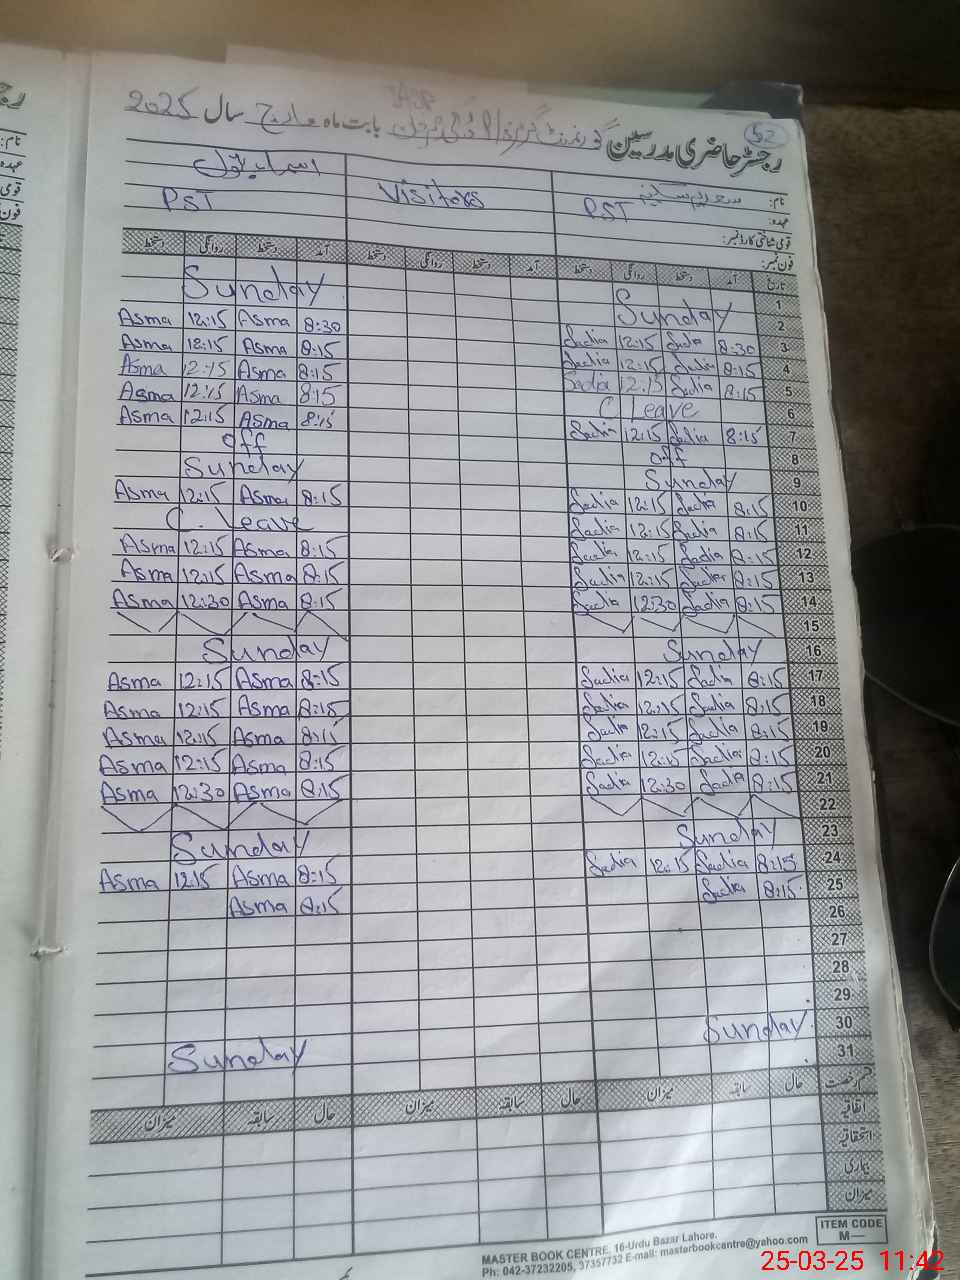 52
رجسٹر حاضری مدرسین گورنمنٹ گرلز بابت ماہ مارچ سال 2025
نام: سعدیہ
Visitors
اسماء بتول
عہدہ: PST
PST
قومی شناختی کارڈ نمبر:
فون نمبر:
تاریخ آمد دستخط روانگی دستخط آمد دستخط روانگی دستخط آمد دستخط روانگی دستخط
1
Sunday Sunday 2
Asma 12:15 Asma 8:30 Sadia 12:15 Sadia 8:30 3
Asma 12:15 Asma 8:15 Sadia 12:15 Sadia 8:15 4
Asma 12:15 Asma 8:15 Sadia 12:15 Sadia 8:15 5
Asma 12:15 Asma 8:15 C Leave 6
Asma 12:15 Asma 8:15 Sadia 12:15 Sadia 8:15 7
Off off 8
Sunday Sunday 9
Asma 12:15 Asma 8:15 Sadia 12:15 Sadia 8:15 10
C. Leave Sadia 12:15 Sadia 8:15 11
Asma 12:15 Asma 8:15 Sadia 12:15 Sadia 8:15 12
Asma 12:15 Asma 8:15 Sadia 12:15 Sadia 8:15 13
Asma 12:30 Asma 8:15 Sadia 12:30 Sadia 8:15 14
15
Sunday Sunday 16
Asma 12:15 Asma 8:15 Sadia 12:15 Sadia 8:15 17
Asma 12:15 Asma 8:15 Sadia 12:15 Sadia 8:15 18
Asma 12:15 Asma 8:15 Sadia 12:15 Sadia 8:15 19
Asma 12:15 Asma 8:15 Sadia 12:15 Sadia 8:15 20
Asma 12:30 Asma 8:15 Sadia 12:30 Sadia 8:15 21
22
Sunday Sunday 23
Asma 12:15 Asma 8:15 Sadia 12:15 Sadia 8:15 24
Asma 8:15 Sadia 8:15 25
26
27
28
29
Sunday Sunday 30
31
قسم رخصت حال سابقہ میزان حال سابقہ میزان حال سابقہ میزان
اتفاقیہ
استحقاقیہ
بیماری
میزان
ITEM CODE
M—
MASTER BOOK CENTRE, 16-Urdu Bazar Lahore.
Ph: 042-37232205, 37357732 E-mail: masterbookcantre@yahoo.com
25-03-25 11:42